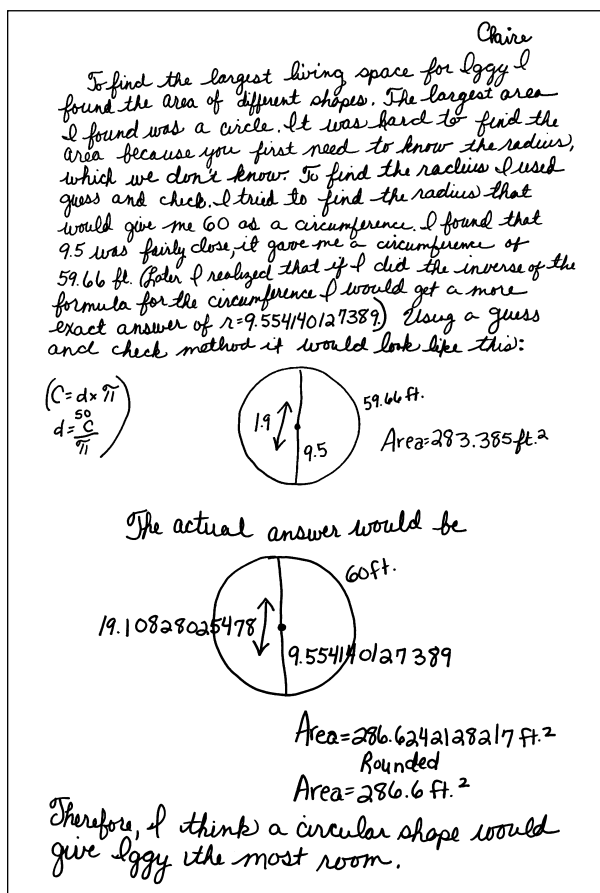 Claire
To find the largest living space for Iggy I
found the area of different shapes. The largest area
I found was a circle. It was hard to find the
area because you first need to know the radius,
which we don't know. To find the radius I used
guess and check. I tried to find the radius that
would give me 60 as a circumference. I found that
9.5 was fairly close, it gave me a circumference of
59.66 ft. (Later I realized that if I did the inverse of the
formula for the circumference I would get a more
exact answer of r=9.554140127389.) Usug a guess
and check method it would look like this:
(C = d x π
so
d = C/π)
1.9
9.5
59.66 ft.
Area=283.385 ft.²
The actual answer would be
60 ft.
19.10828025478
9.554140127389
Area=286.6242128217 ft.²
Rounded
Area=286.6 ft.²
Therefore, I think a circular shape would
give Iggy the most room.